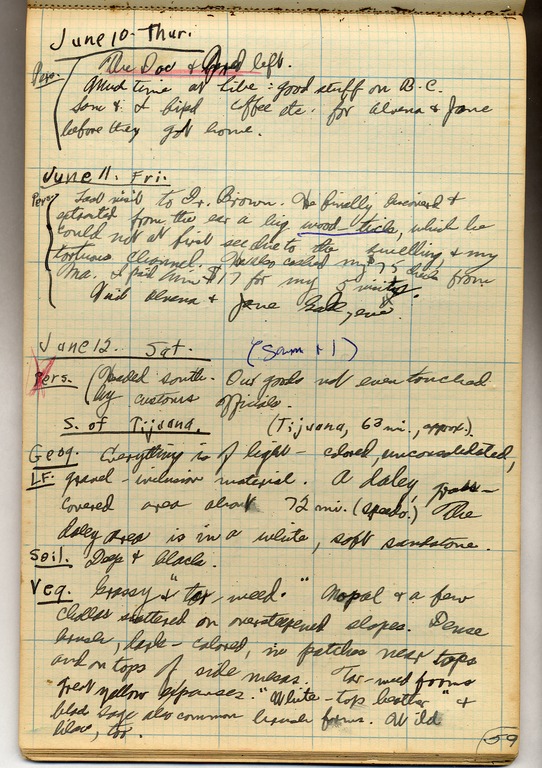 June 10 - Thur.
Pers. The Doc & left.
Much time at Libe: good stuff on B.C.
Sam & I biked etc. for Alvena & Jane
before they got home.
June 11. Fri.
Pers. Last visit to Dr. Brown. He finally discovered &
extracted from the ear a big wood-tick, which he
could not at first see due to the swelling & my
tortuous channel. cashed my $75 check from
Ma. I paid him $17 for my 5 visits.
Alvena & Jane
June 12. Sat. (Sam + I)
Pers. (Headed south. Our goods not even touched
by customs officials.
S. of Tijuana. (Tijuana, 63 mi., approx.).
Geog. Everything is of light-colored, unconsolidated,
LF. gravel-inclusion material. A daley, grass-
covered area about 72 mi. (speedo.) The
daley area is in a white, soft sandstone.
Soil. Deep & black.
Veg. Grassy & "tar-weed." Nopal & a few
chollas scattered on oversteepened slopes. Dense
brush, dark-colored, in patches near tops
and on tops of side mesas. Tar-weed forms
great yellow expanses. "White-top heather" &
black sage also common brush forms. Wild
lilac, too.
59